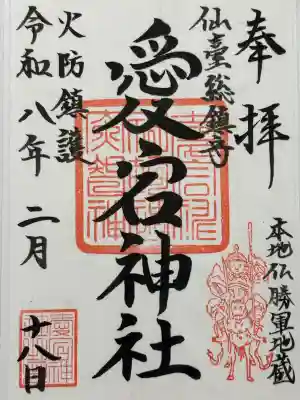 奉拝
仙臺総鎮守
愛宕神社
火防鎮護
令和八年 二月
十八日
本地仏 勝軍地蔵